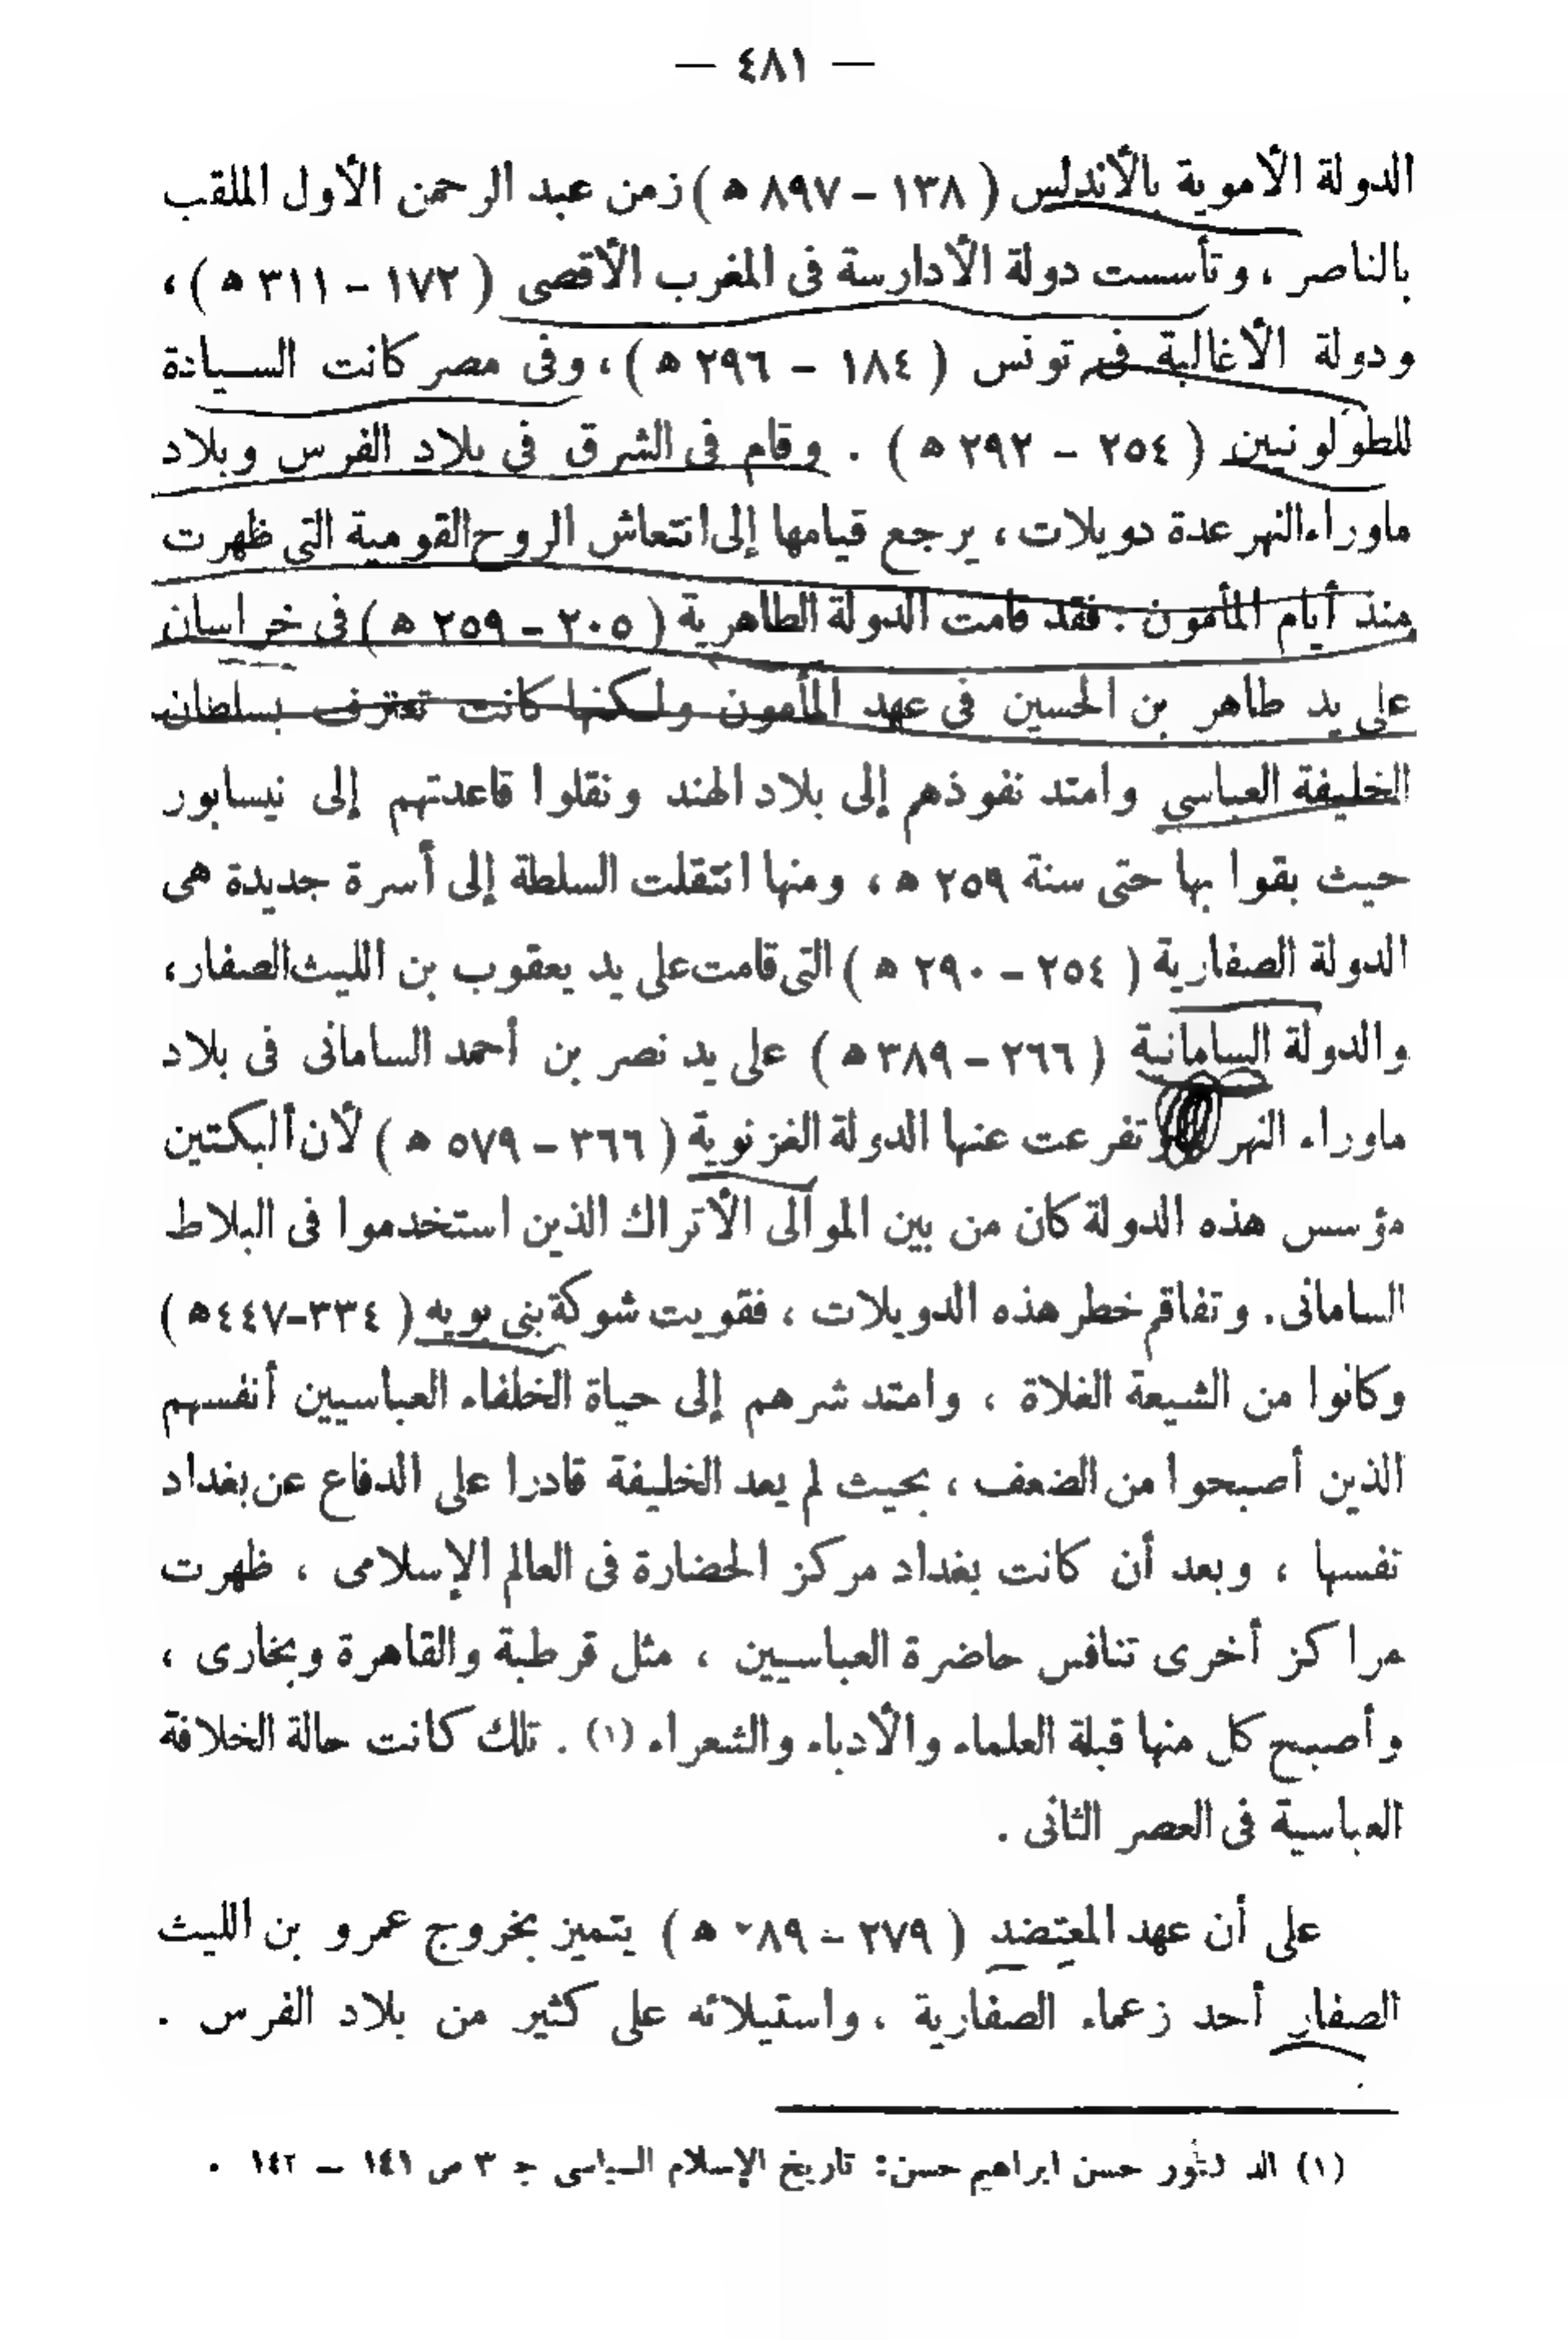 — ٤٨١ —
الدولة الأموية بالأندلس ( ١٣٨ – ٨٩٧ ه ) زمن عبد الرحمن الأول الملقب
بالناصر ، وتأسست دولة الأدارسة فى المغرب الأقصى ( ١٧٢ – ٣١١ ه ) ،
ودولة الأغالبة فى تونس ( ١٨٤ – ٢٩٦ ه ) ، وفى مصر كانت السيادة
للطولونيين ( ٢٥٤ – ٢٩٢ ه ) . وقام فى الشرق فى بلاد الفرس وبلاد
ماوراء النهر عدة دويلات ، يرجع قيامها إلى انتعاش الروح القومية التى ظهرت
منذ أيام المأمون . فقد قامت الدولة الطاهرية ( ٢٠٥ – ٢٥٩ ه ) فى خراسان
على يد طاهر بن الحسين فى عهد المأمون ولكنها كانت تعترف بسلطان
الخليفة العباسى وامتد نفوذهم إلى بلاد الهند ونقلوا قاعدتهم إلى نيسابور
حيث بقوا بها حتى سنة ٢٥٩ ه ، ومنها انتقلت السلطة إلى أسرة جديدة هى
الدولة الصفارية ( ٢٥٤ – ٢٩٠ ه ) التى قامت على يد يعقوب بن الليث الصفار ،
والدولة السامانية ( ٢٦٦ – ٣٨٩ ه ) على يد نصر بن أحمد السامانى فى بلاد
ماوراء النهر وتفرعت عنها الدولة الغزنوية ( ٣٦٦ – ٥٧٩ ه ) لأن ألبكتين
مؤسس هذه الدولة كان من بين الموالى الأتراك الذين استخدموا فى البلاط
السامانى . وتفاقم خطر هذه الدويلات ، فقويت شوكة بنى بويه ( ٣٣٤–٤٤٧ ه )
وكانوا من الشيعة الغلاة ، وامتد شرهم إلى حياة الخلفاء العباسيين أنفسهم
الذين أصبحوا من الضعف ، بحيث لم يعد الخليفة قادرا على الدفاع عن بغداد
نفسها ، وبعد أن كانت بغداد مركز الحضارة فى العالم الإسلامى ، ظهرت
مراكز أخرى تنافس حاضرة العباسيين ، مثل قرطبة والقاهرة وبخارى ،
وأصبح كل منها قبلة العلماء والأدباء والشعراء (١) . تلك كانت حالة الخلافة
العباسية فى العصر الثانى .
على أن عهد المعتضد ( ٢٧٩ – ٢٨٩ ه ) يتميز بخروج عمرو بن الليث
الصفار أحد زعماء الصفارية ، واستيلائه على كثير من بلاد الفرس .
(١) الدكتور حسن ابراهيم حسن : تاريخ الإسلام السياسى ج ٣ ص ١٤١ – ١٤٢ .